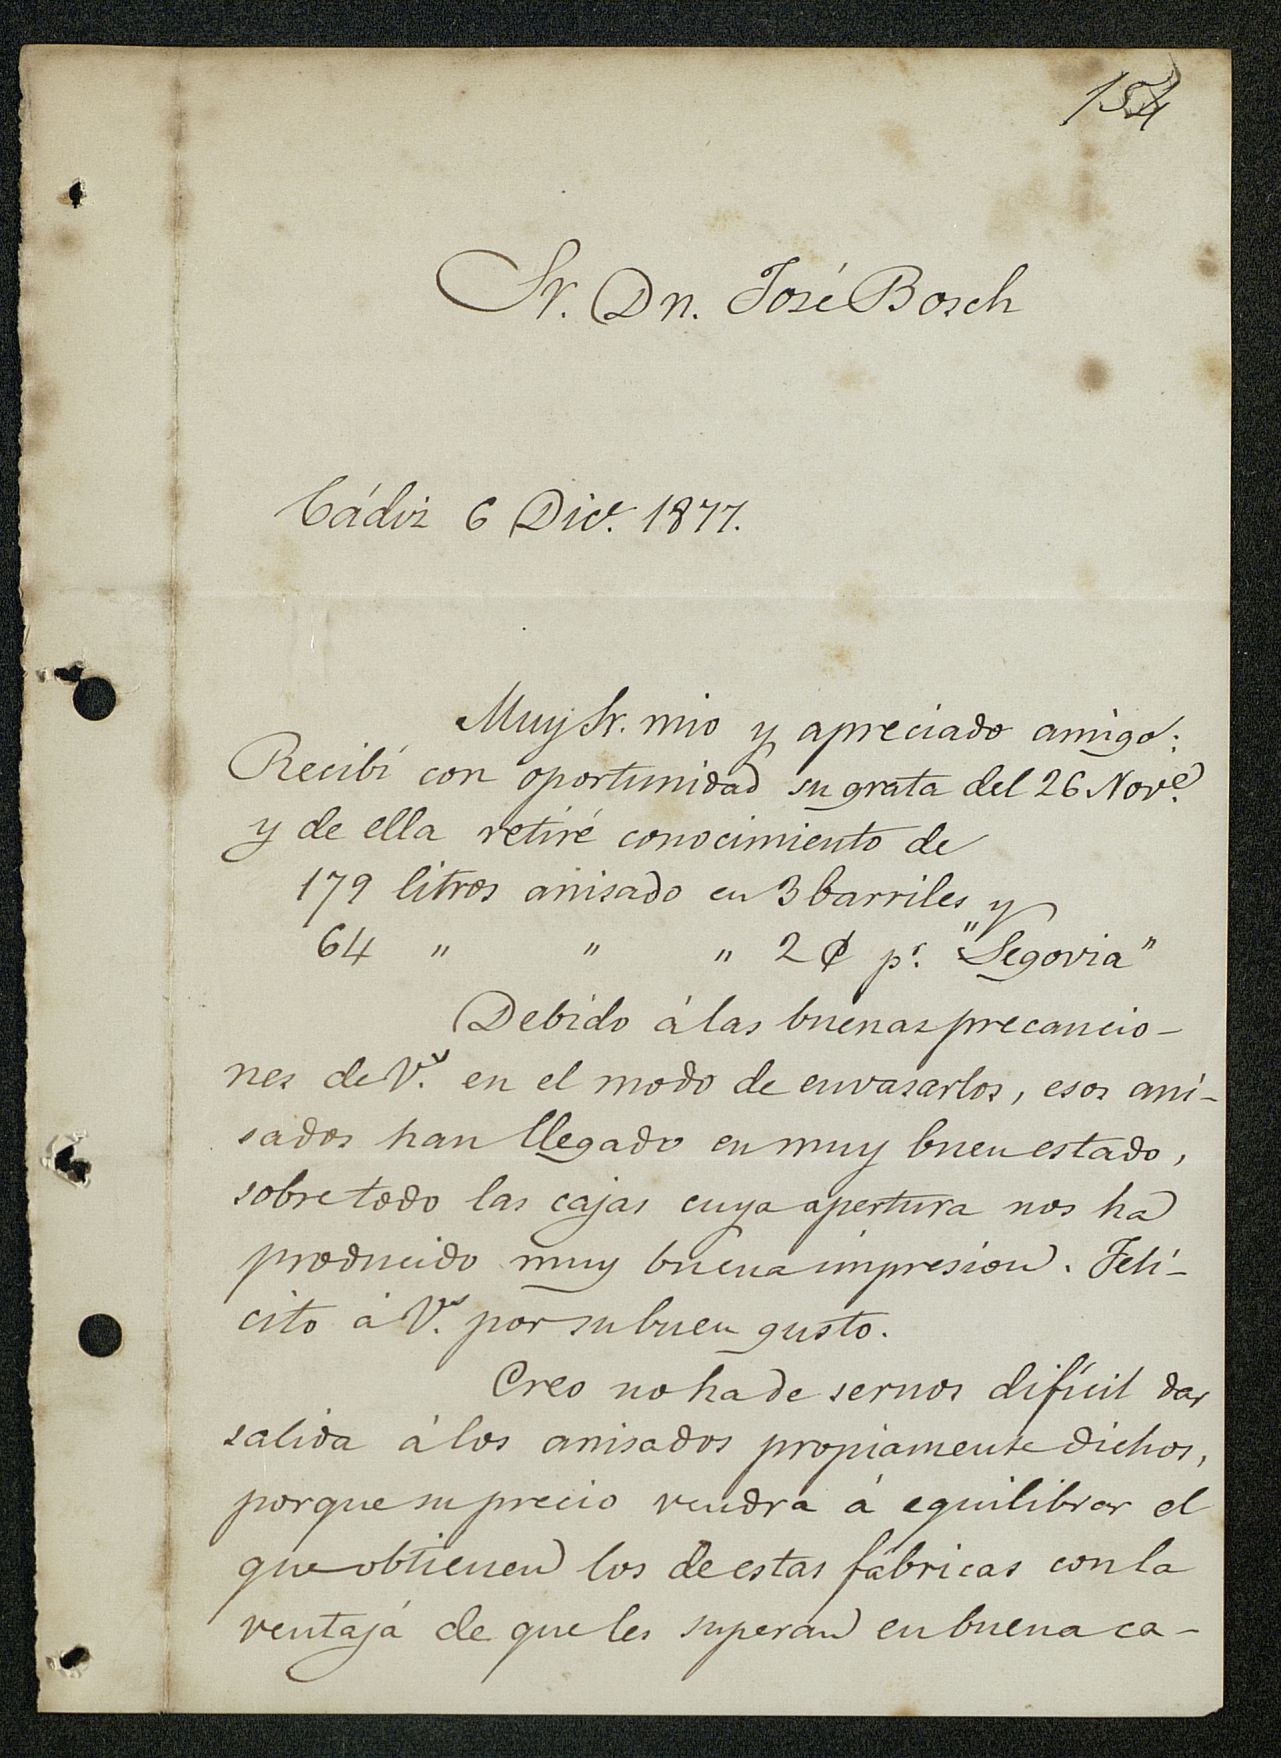 Sr. Dn. José Bosch
Cádiz 6 Dice. 1877.
Muy Sr. mio y apreciado amigo:
Recibí con oportunidad su grata del 26 Nove.
y de ella retiré conocimiento de
179 litros anisado en 3 barriles y
64 " " " 2 ₵ pr. "Segovia"
Debido á las buenas precaucio-
nes de Vs. en el modo de envasarlos, esos ani-
sados han llegado en muy buen estado,
sobre todo las cajas cuya apertura nos ha
producido muy buena impresion. Feli-
cito á Vs. por su buen gusto.
Creo no ha de sernos difícil dar
salida á los anisados propiamente dichos,
porque su precio vendra á equilibrar el
que obtienen los de estas fábricas con la
ventajá de que les superan en buena ca-